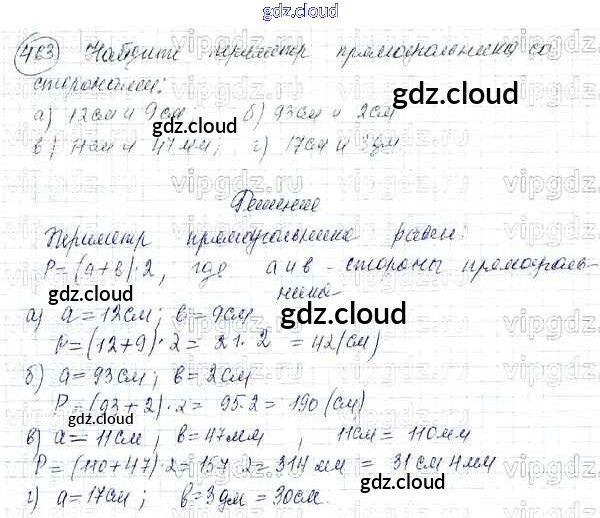 gdz.cloud
463 Найдите периметр прямоугольника со
сторонами:
а) 12см и 9см б) 93см и 2см
gdz.cloud
в) 11см и 47мм; г) 17см и 3дм
gdz.cloud
Решение
Периметр прямоугольника равен:
P=(a+b)·2, где a и b - стороны прямоуголь-
ника
gdz.cloud
а) a=12см; b=9см
gdz.cloud
P=(12+9)·2=21·2=42(см)
б) a=93см; b=2см
P=(93+2)·2=95·2=190(см)
gdz.cloud
в) a=11см, b=47мм, 11см=110мм
gdz.cloud
P=(110+47)·2=157·2=314мм=31см4мм
г) a=17см; b=3дм=30см.